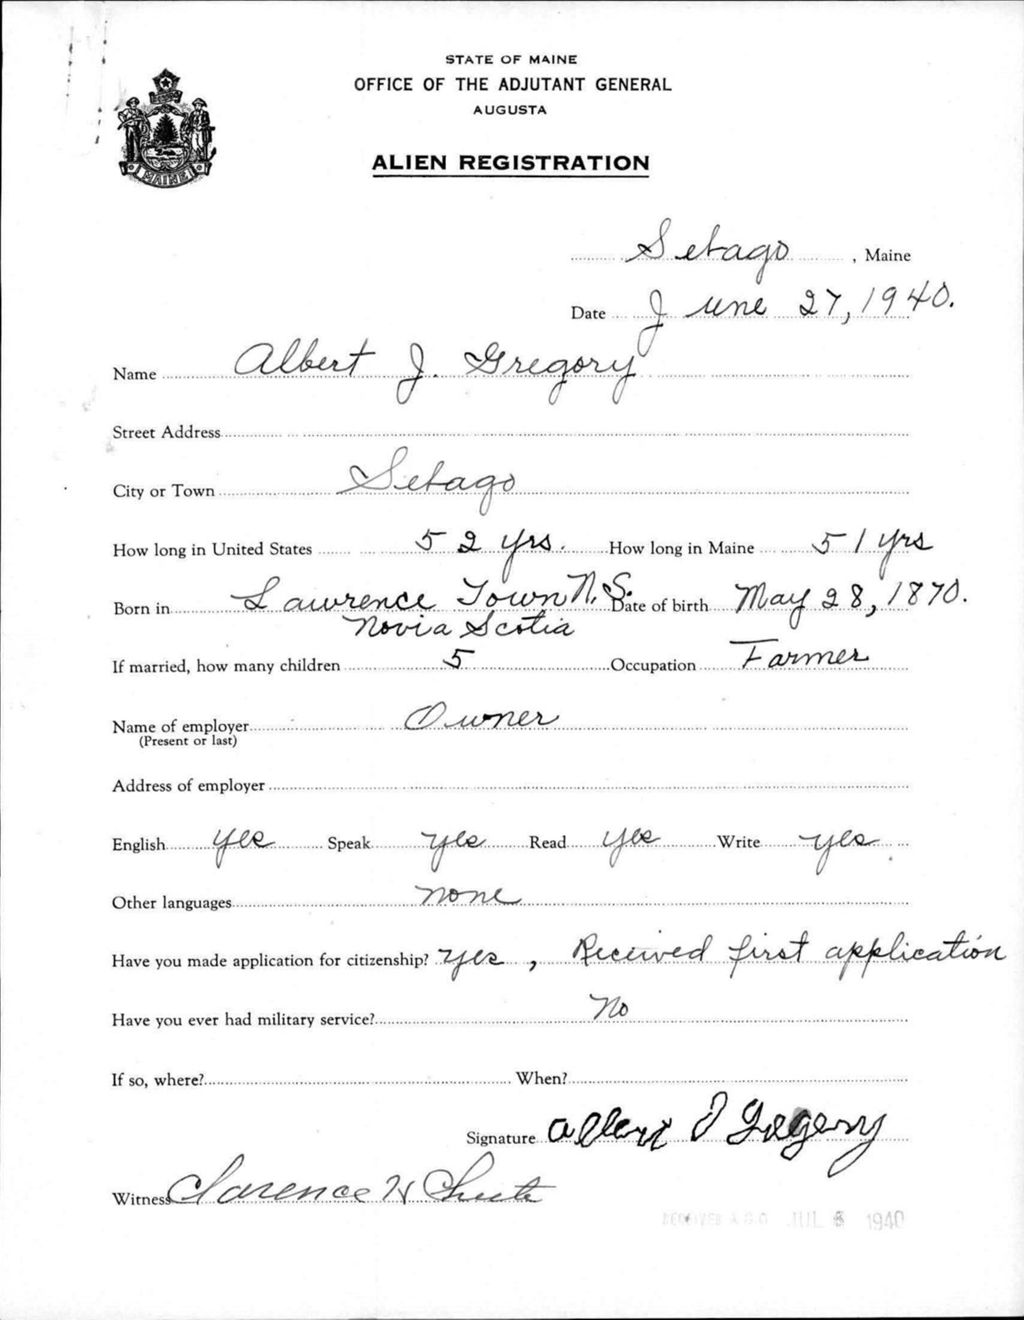 STATE OF MAINE
OFFICE OF THE ADJUTANT GENERAL
AUGUSTA
MAINE
ALIEN REGISTRATION
Sebago, Maine
Date June 27, 1940.
Name Albert J. Gregory
Street Address
City or Town Sebago
How long in United States 52 yrs. How long in Maine 51 yrs
Born in Lawrence Town N.S. Date of birth May 28, 1870.
Novia Scotia
If married, how many children 5 Occupation Farmer
Name of employer Owner
(Present or last)
Address of employer
English yes Speak yes Read yes Write yes
Other languages none
Have you made application for citizenship? yes, Received first application
Have you ever had military service? No
If so, where? When?
Signature Albert J Gregory
Witness Clarence H
RECEIVED A.G.O. JUL 1940